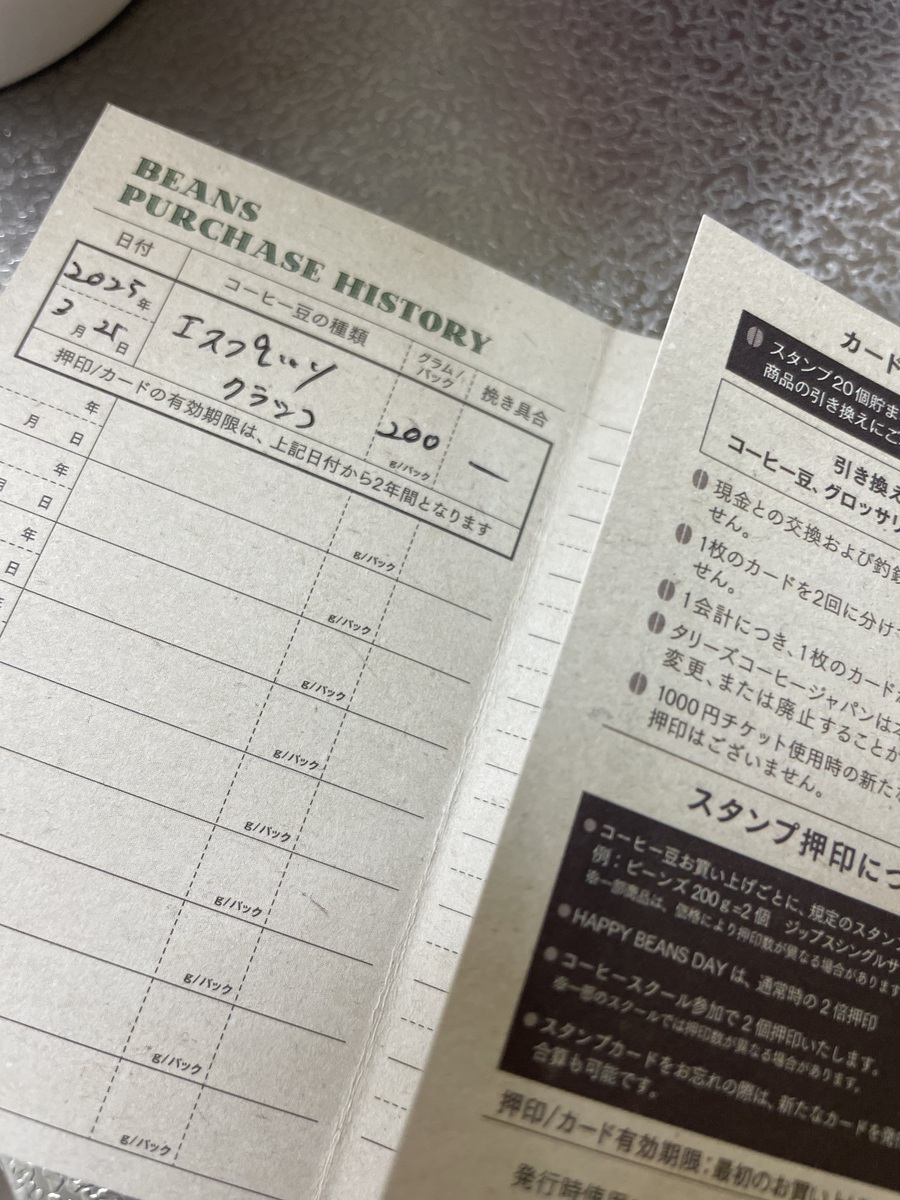 BEANS
PURCHASE HISTORY
日付
コーヒー豆の種類
グラム/
パック
挽き具合
2025年
3月25日
エスプレッソ
クラシコ
200
g/パック
ー
押印/カードの有効期限は、上記日付から2年間となります
年
月 日
g/パック
年
月 日
g/パック
年
日
g/パック
年
g/パック
g/パック
g/パック
g/パック
g/パック
g/パック
カード
スタンプ20個貯ま
商品の引き換えにご
引き換え
コーヒー豆、グロッサリ
現金との交換および釣銭
せん。
1枚のカードを2回に分け
せん。
1会計につき、1枚のカード
タリーズコーヒージャパンは本
変更、または廃止することが
1000円チケット使用時の新たな
押印はございません。
スタンプ押印につ
コーヒー豆お買い上げごとに、規定のスタン
例:ビーンズ200g=2個 ジップスシングルサ
※一部商品は、価格により押印数が異なる場合があります
HAPPY BEANS DAY は、通常時の2倍押印
コーヒースクール参加で2個押印いたします。
※一部のスクールでは押印数が異なる場合があります。
スタンプカードをお忘れの際は、新たなカードを発行
合算も可能です。
押印/カード有効期限:最初のお買い
発行時使用